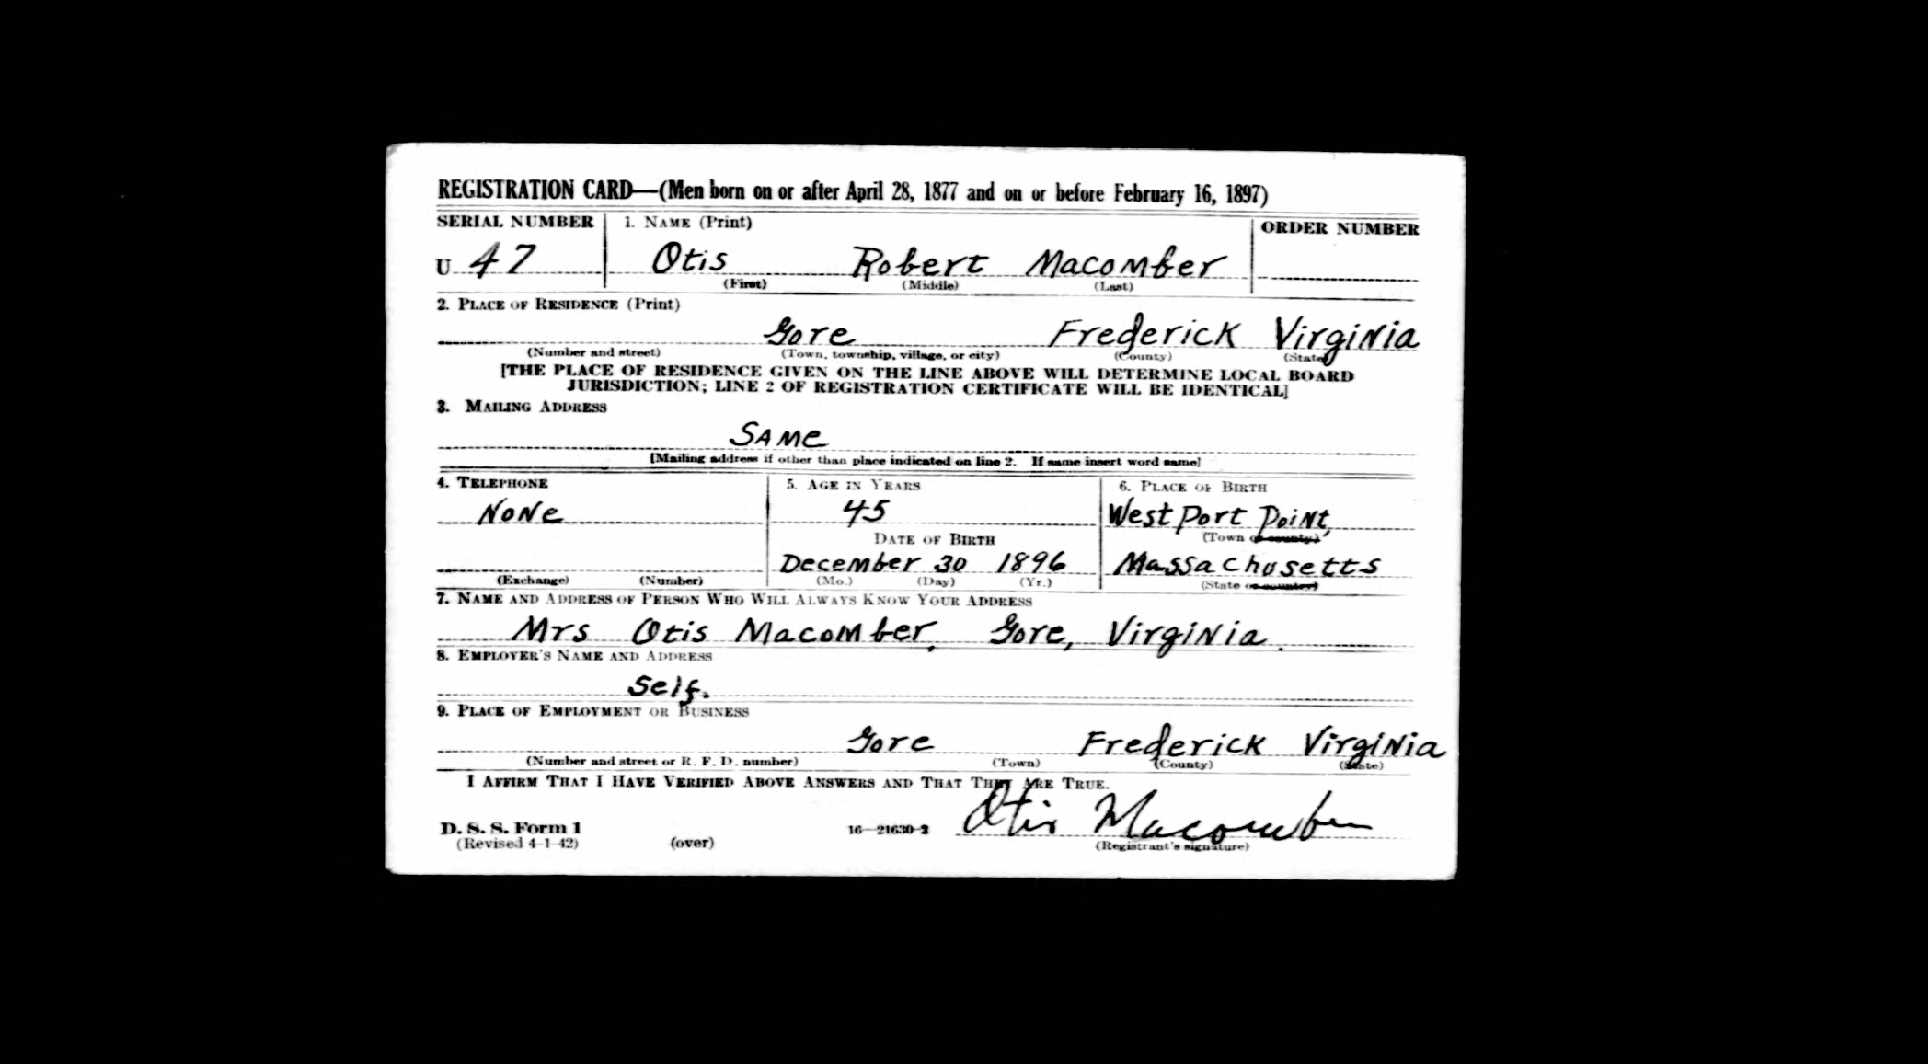 REGISTRATION CARD—(Men born on or after April 28, 1877 and on or before February 16, 1897)
SERIAL NUMBER 1. NAME (Print) ORDER NUMBER
U 47 Otis Robert Macomber
(First) (Middle) (Last)
2. PLACE OF RESIDENCE (Print)
Gore Frederick Virginia
(Number and street) (Town, township, village, or city) (County) (State)
[THE PLACE OF RESIDENCE GIVEN ON THE LINE ABOVE WILL DETERMINE LOCAL BOARD
JURISDICTION; LINE 2 OF REGISTRATION CERTIFICATE WILL BE IDENTICAL]
3. MAILING ADDRESS
SAME
[Mailing address if other than place indicated on line 2. If same insert word same]
4. TELEPHONE 5. AGE IN YEARS 6. PLACE OF BIRTH
NoNe 45 West Port Point,
DATE OF BIRTH (Town or county)
December 30 1896 Massachusetts
(Exchange) (Number) (Mo.) (Day) (Yr.) (State or country)
7. NAME AND ADDRESS OF PERSON WHO WILL ALWAYS KNOW YOUR ADDRESS
Mrs Otis Macomber, Gore, Virginia.
8. EMPLOYER'S NAME AND ADDRESS
Self.
9. PLACE OF EMPLOYMENT OR BUSINESS
Gore Frederick Virginia
(Number and street or R. F. D. number) (Town) (County) (State)
I AFFIRM THAT I HAVE VERIFIED ABOVE ANSWERS AND THAT THEY ARE TRUE.
Otis Macomber
D. S. S. Form 1 16—21630-2
(Revised 4-1-42) (over) (Registrant's signature)